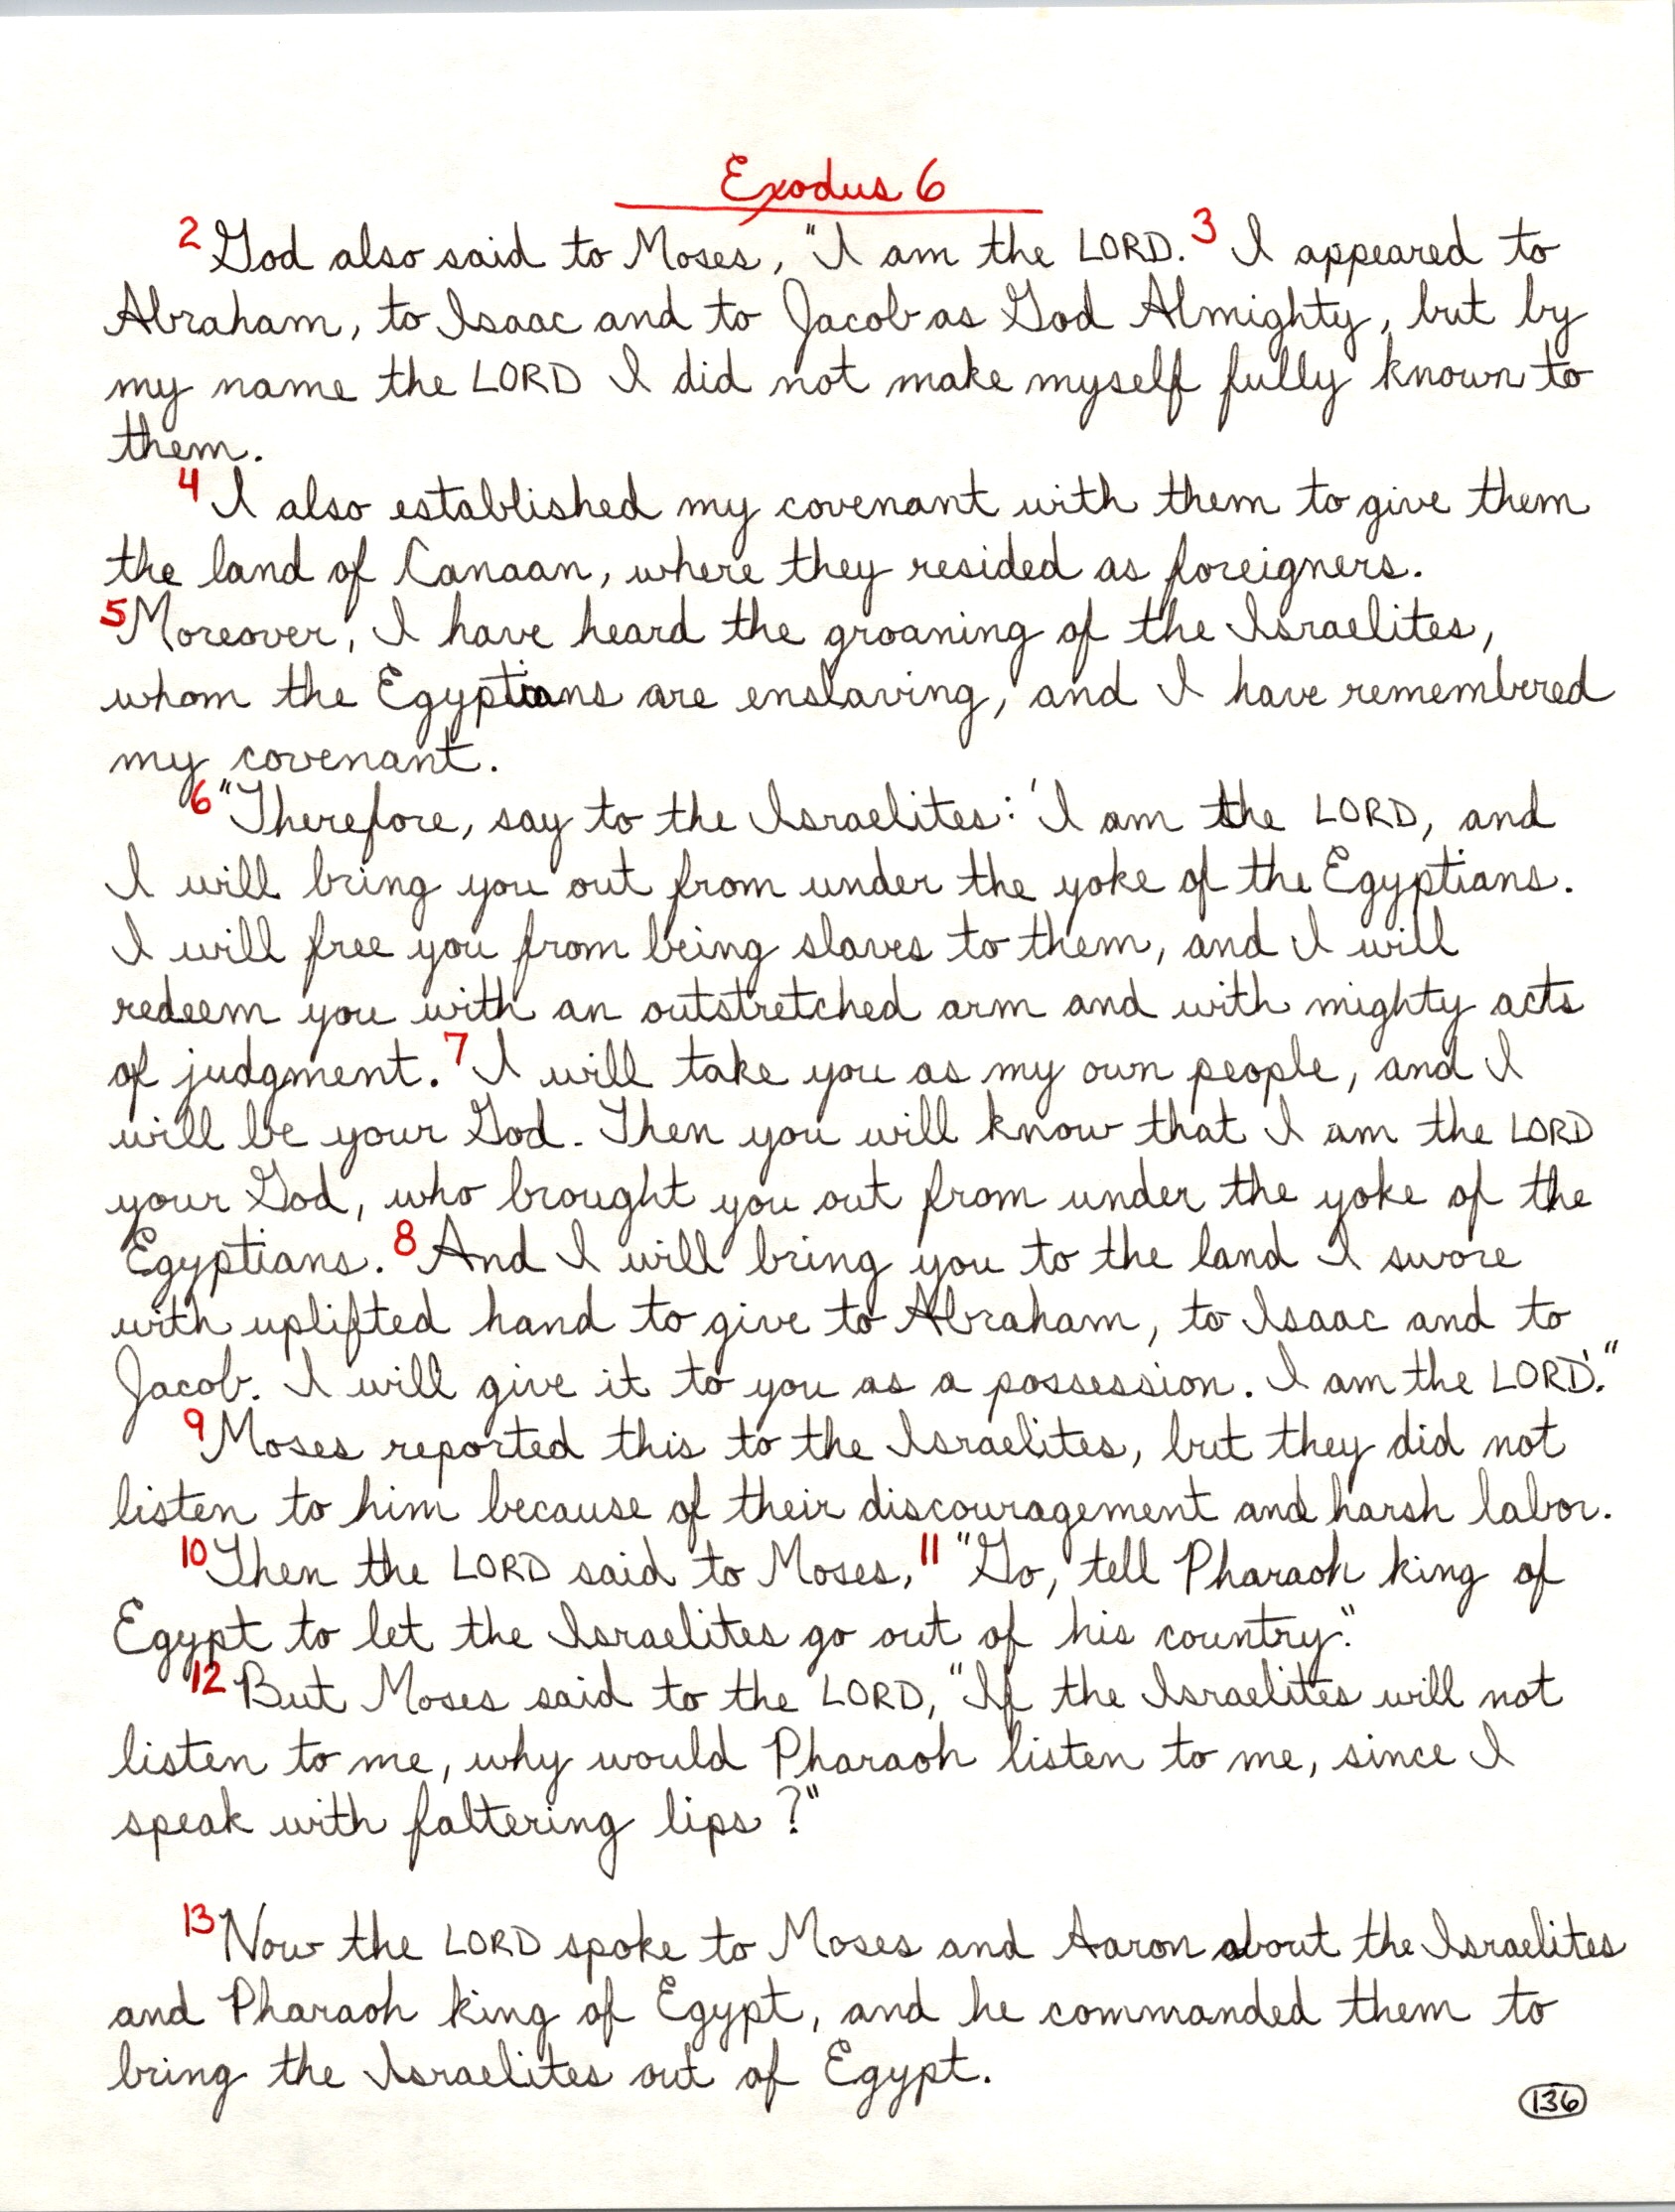 Exodus 6
2 God also said to Moses, "I am the LORD. 3 I appeared to
Abraham, to Isaac and to Jacob as God Almighty, but by
my name the LORD I did not make myself fully known to
them.
4 I also established my covenant with them to give them
the land of Canaan, where they resided as foreigners.
5 Moreover, I have heard the groaning of the Israelites,
whom the Egyptians are enslaving, and I have remembered
my covenant.
6 "Therefore, say to the Israelites: 'I am the LORD, and
I will bring you out from under the yoke of the Egyptians.
I will free you from being slaves to them, and I will
redeem you with an outstretched arm and with mighty acts
of judgment. 7 I will take you as my own people, and I
will be your God. Then you will know that I am the LORD
your God, who brought you out from under the yoke of the
Egyptians. 8 And I will bring you to the land I swore
with uplifted hand to give to Abraham, to Isaac and to
Jacob. I will give it to you as a possession. I am the LORD.'"
9 Moses reported this to the Israelites, but they did not
listen to him because of their discouragement and harsh labor.
10 Then the LORD said to Moses, 11 "Go, tell Pharaoh king of
Egypt to let the Israelites go out of his country."
12 But Moses said to the LORD, "If the Israelites will not
listen to me, why would Pharaoh listen to me, since I
speak with faltering lips?"
13 Now the LORD spoke to Moses and Aaron about the Israelites
and Pharaoh king of Egypt, and he commanded them to
bring the Israelites out of Egypt.
136